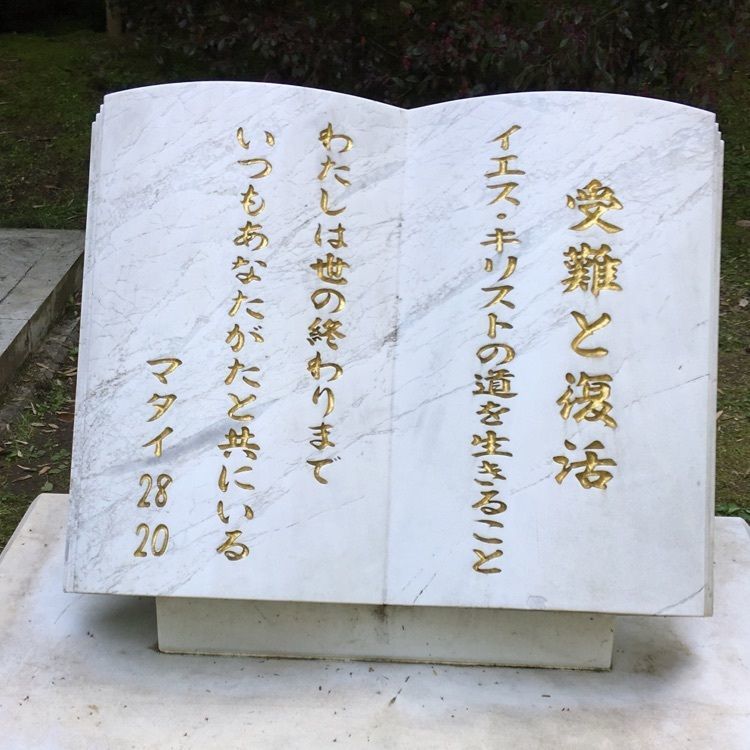 受難と復活
イエス・キリストの道を生きること
わたしは世の終わりまで
いつもあなたがたと共にいる
マタイ 28 20